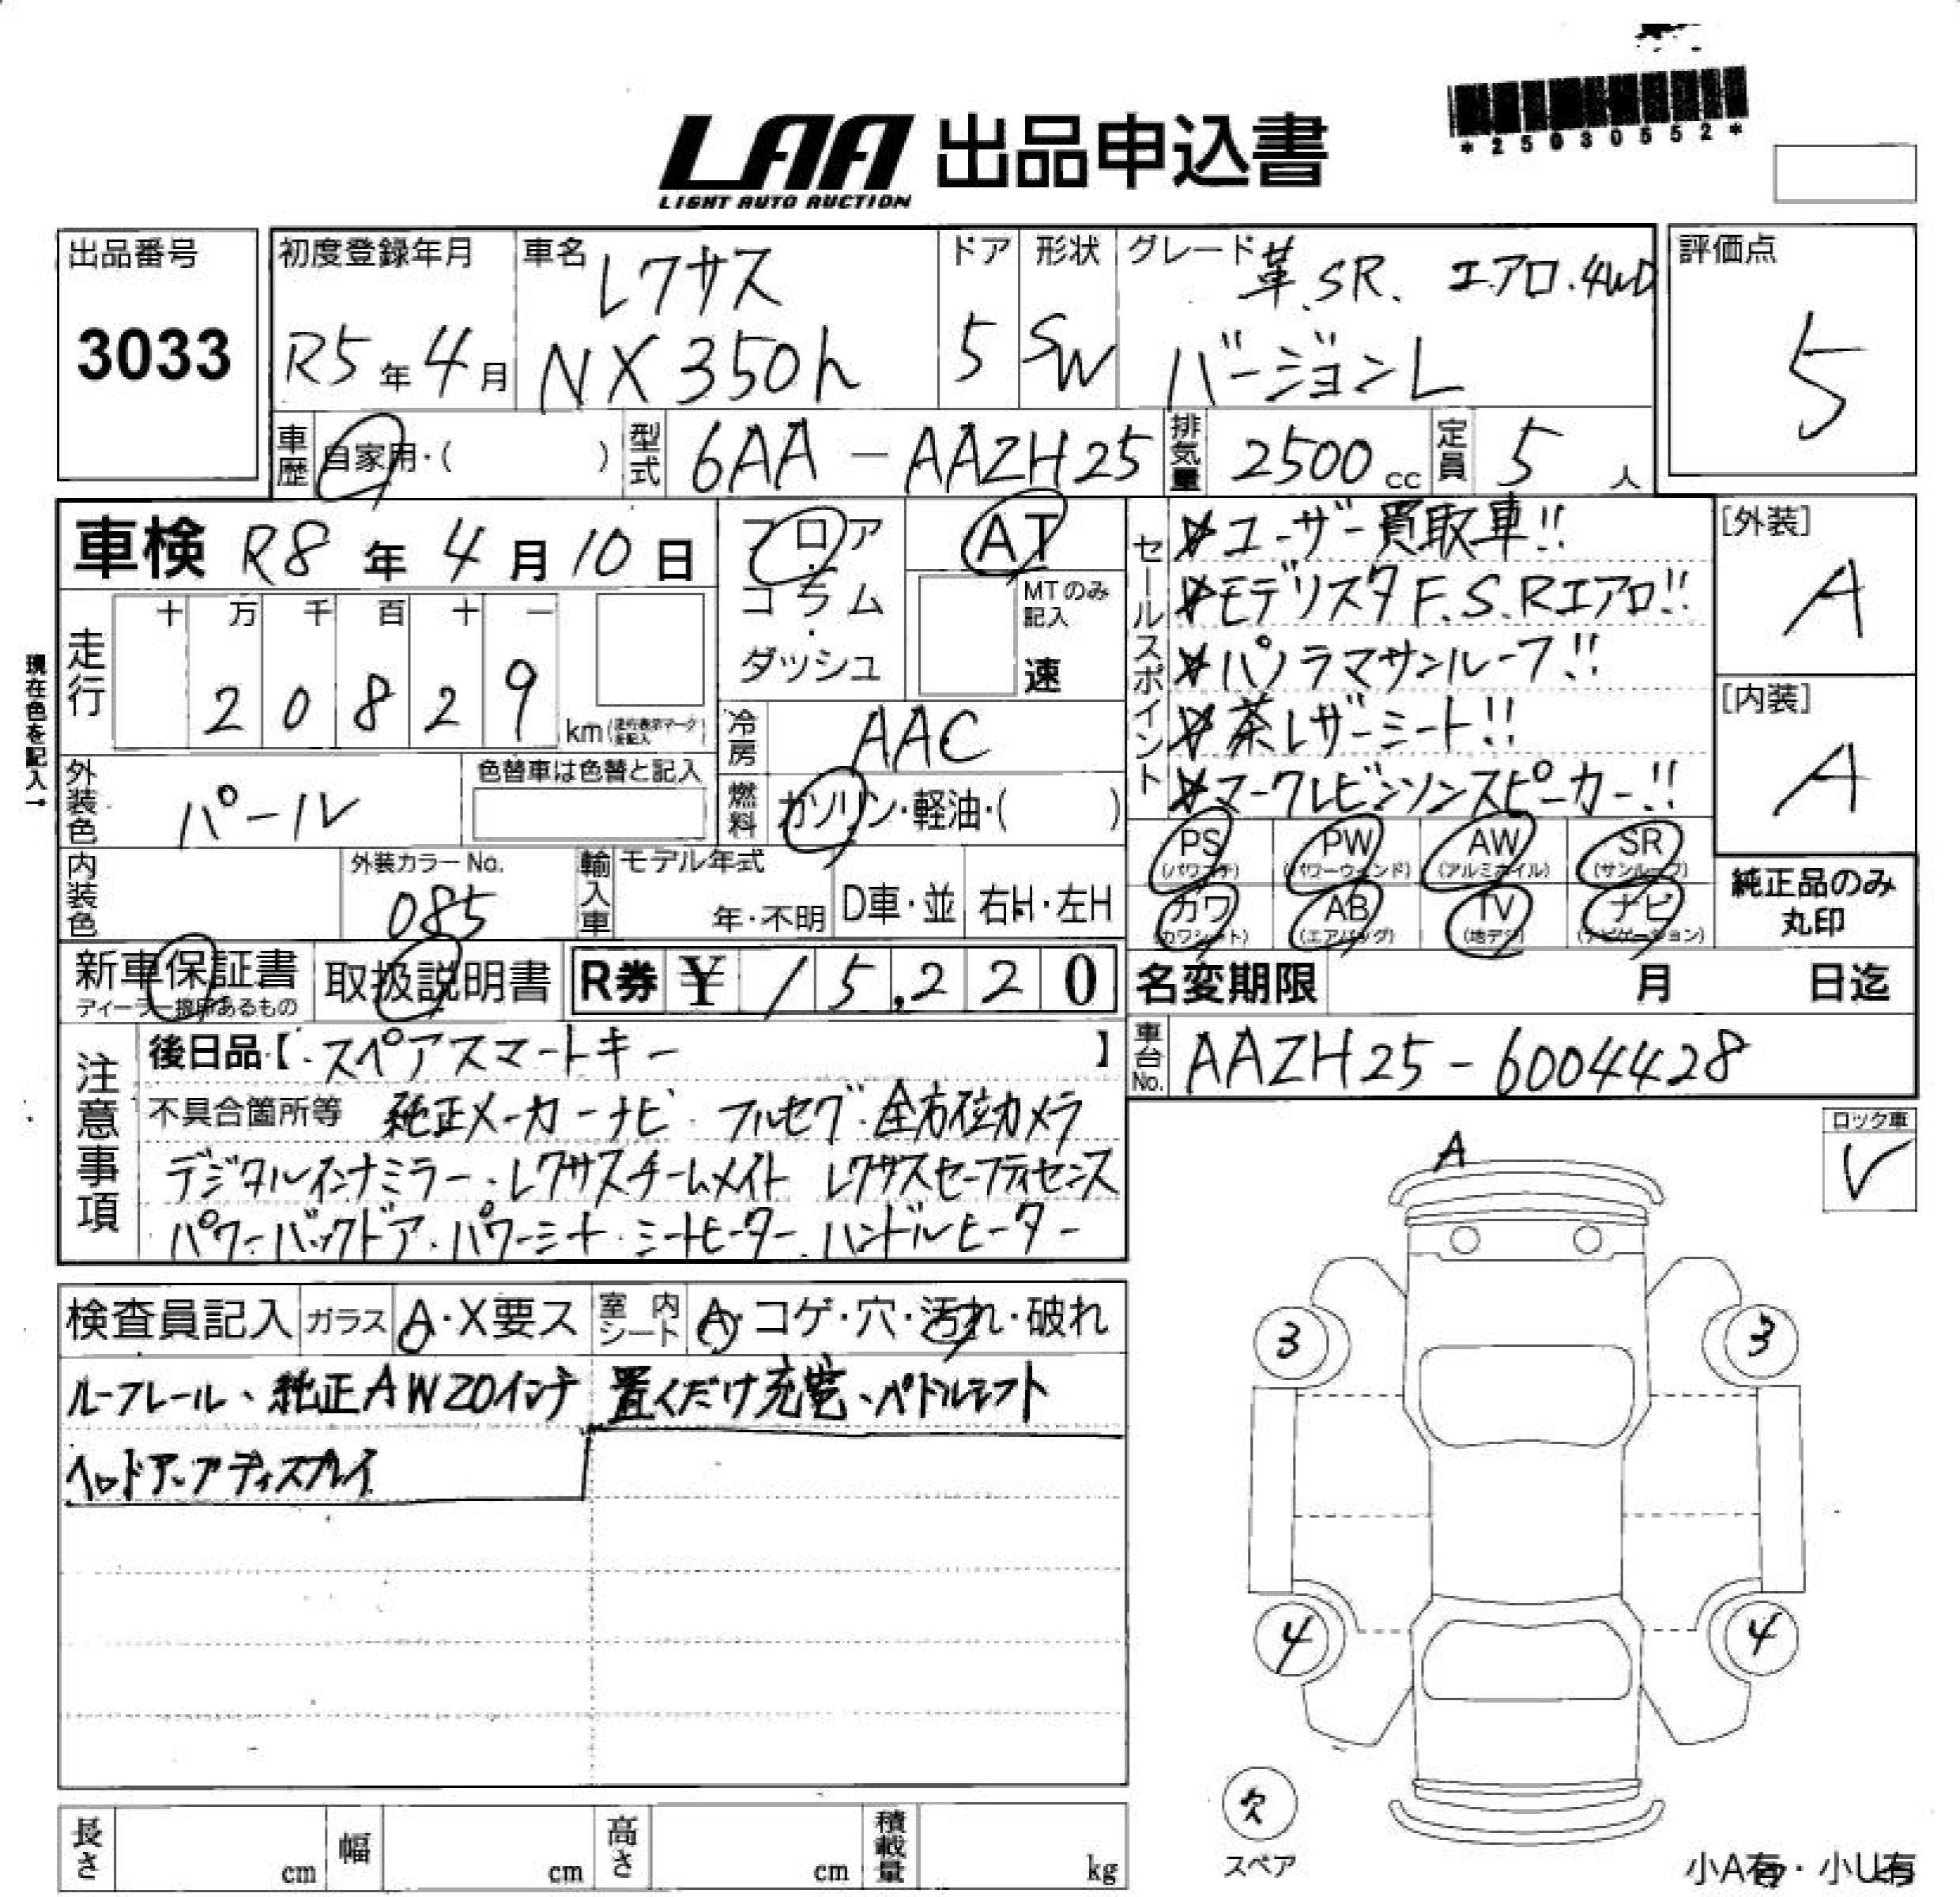 LAA 出品申込書
LIGHT AUTO AUCTION
*25030552*
出品番号
3033
初度登録年月
R5年4月
車名
レクサス
NX350h
ドア
5
形状
SW
グレード
革.SR. エアロ.4WD
バージョンL
評価点
5
車歴
自家用・( )
型式
6AA-AAZH25
排気量
2500cc
定員
5人
車検 R8年4月10日
フロア
コラム
・
ダッシュ
AT
MTのみ
記入
速
セールスポイント
☆ユーザー買取車!!
☆モデリスタF.S.Rエアロ!!
☆パノラマサンルーフ!!
☆茶レザーシート!!
☆マークレビンソンスピーカー!!
[外装]
A
[内装]
A
現在色を記入→
走行
十 万 千 百 十 一
2 0 8 2 9
km
冷房
AAC
外装色
パール
色替車は色替と記入
燃料
ガソリン・軽油・( )
PS PW AW SR
(パワステ) (パワーウィンド) (アルミホイル) (サンルーフ)
カワ AB TV ナビ
(カワシート) (エアバッグ) (地デジ) (ナビゲーション)
純正品のみ
丸印
内装色
外装カラーNo.
085
輸入車
モデル年式
年・不明
D車・並
右H・左H
新車保証書
ディーラー捺印あるもの
取扱説明書
R券 ¥15,220
名変期限 月 日迄
注意事項
後日品【・スペアスマートキー 】
不具合箇所等 純正メーカーナビ・フルセグ・全方位カメラ
デジタルインナミラー・レクサスチームメイト レクサスセーフティセンス
パワーバックドア・パワーシート・シートヒーター・ハンドルヒーター
車台No.
AAZH25-6004428
ロック車
✓
A
検査員記入
ガラス
A・X要ス
室内シート
A・コゲ・穴・汚れ・破れ
ルーフレール、純正AW20インチ
置くだけ充電、パドルシフト
ヘッドアップディスプレイ
3
3
4
4
欠
スペア
長さ cm
幅 cm
高さ cm
積載量 kg
小A有・小U有